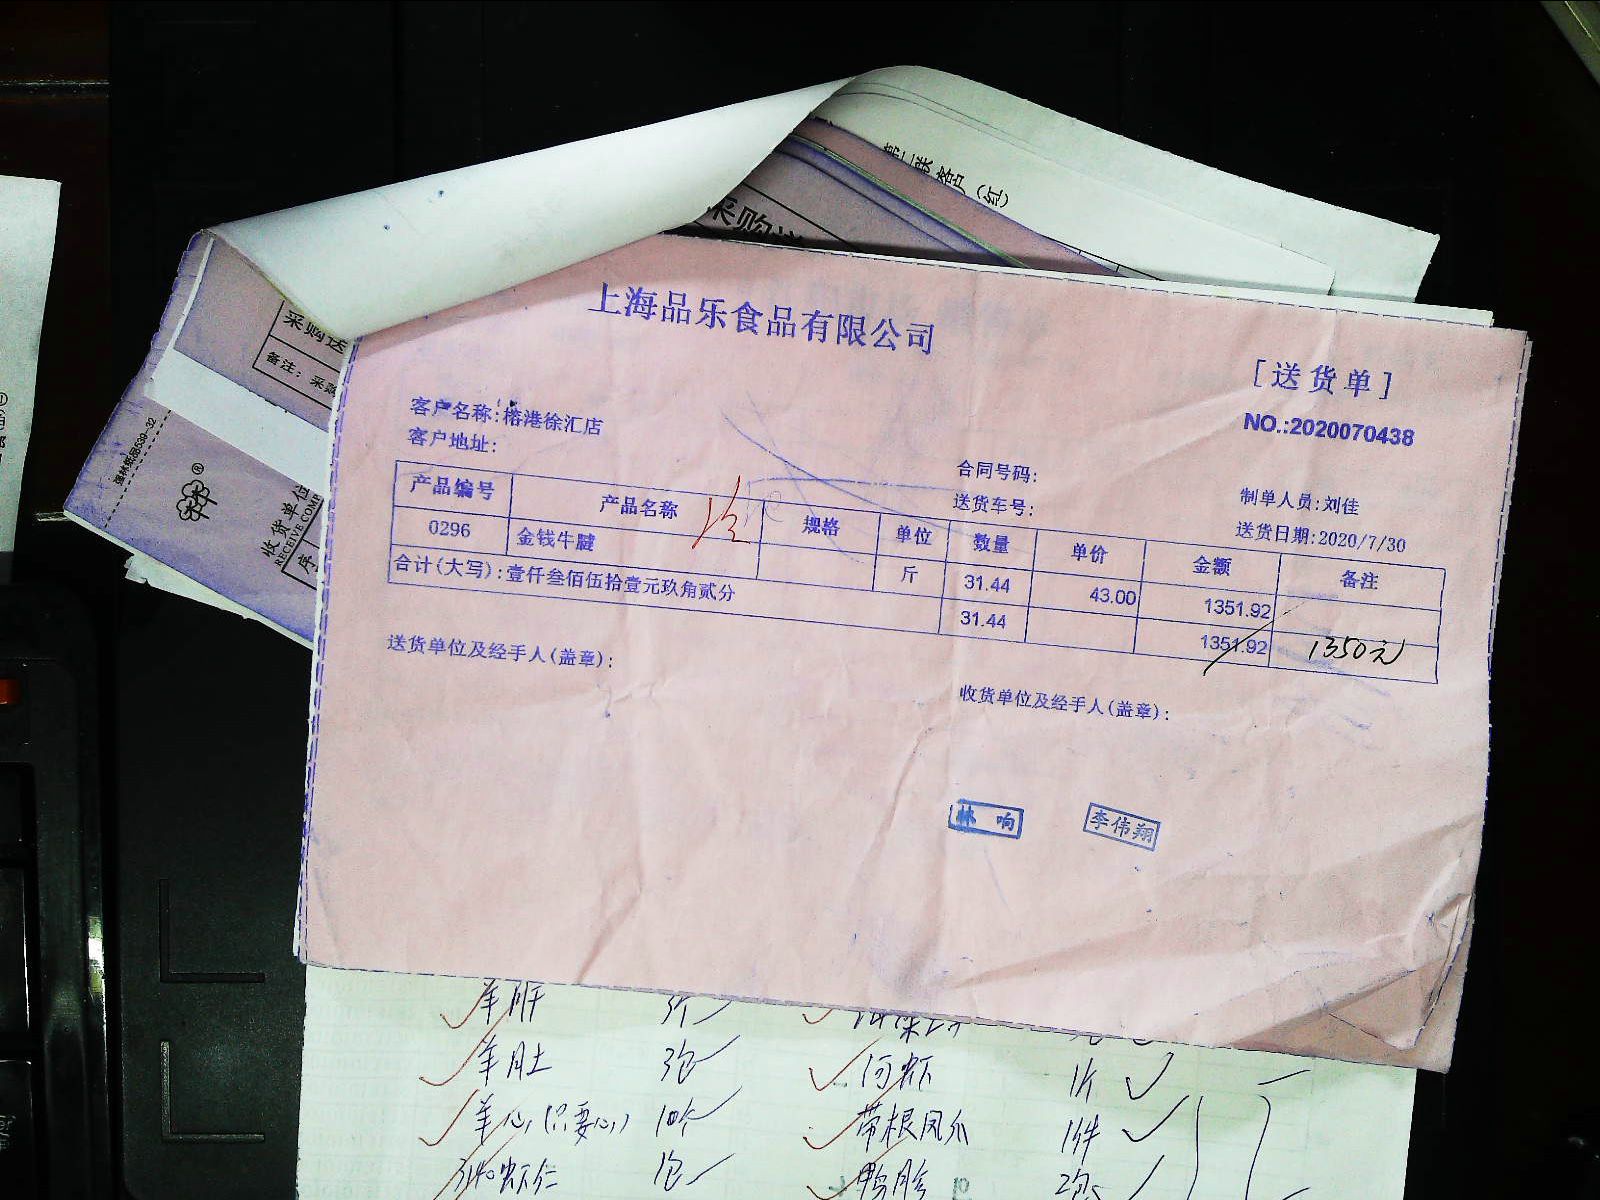 第二联客户(红)
采购送
采购送
备注：采购
强林纸品539-32
林®
收货单位
RECEIVE COMP
序
上海品乐食品有限公司
[送货单]
NO.:2020070438
客户名称:榕港徐汇店
客户地址:
合同号码:
送货车号:
制单人员:刘佳
送货日期:2020/7/30
产品编号 产品名称 规格 单位 数量 单价 金额 备注
0296 金钱牛腱 斤 31.44 43.00 1351.92
合计(大写):壹仟叁佰伍拾壹元玖角贰分 31.44 1351.92 1350元
送货单位及经手人(盖章):
收货单位及经手人(盖章):
林响 李伟翔
羊肝 3斤
羊肚 3包 河虾 1斤
羊心(只要心) 10个 带根凤爪 1件
3140虾仁 1包 鸭胗 2包